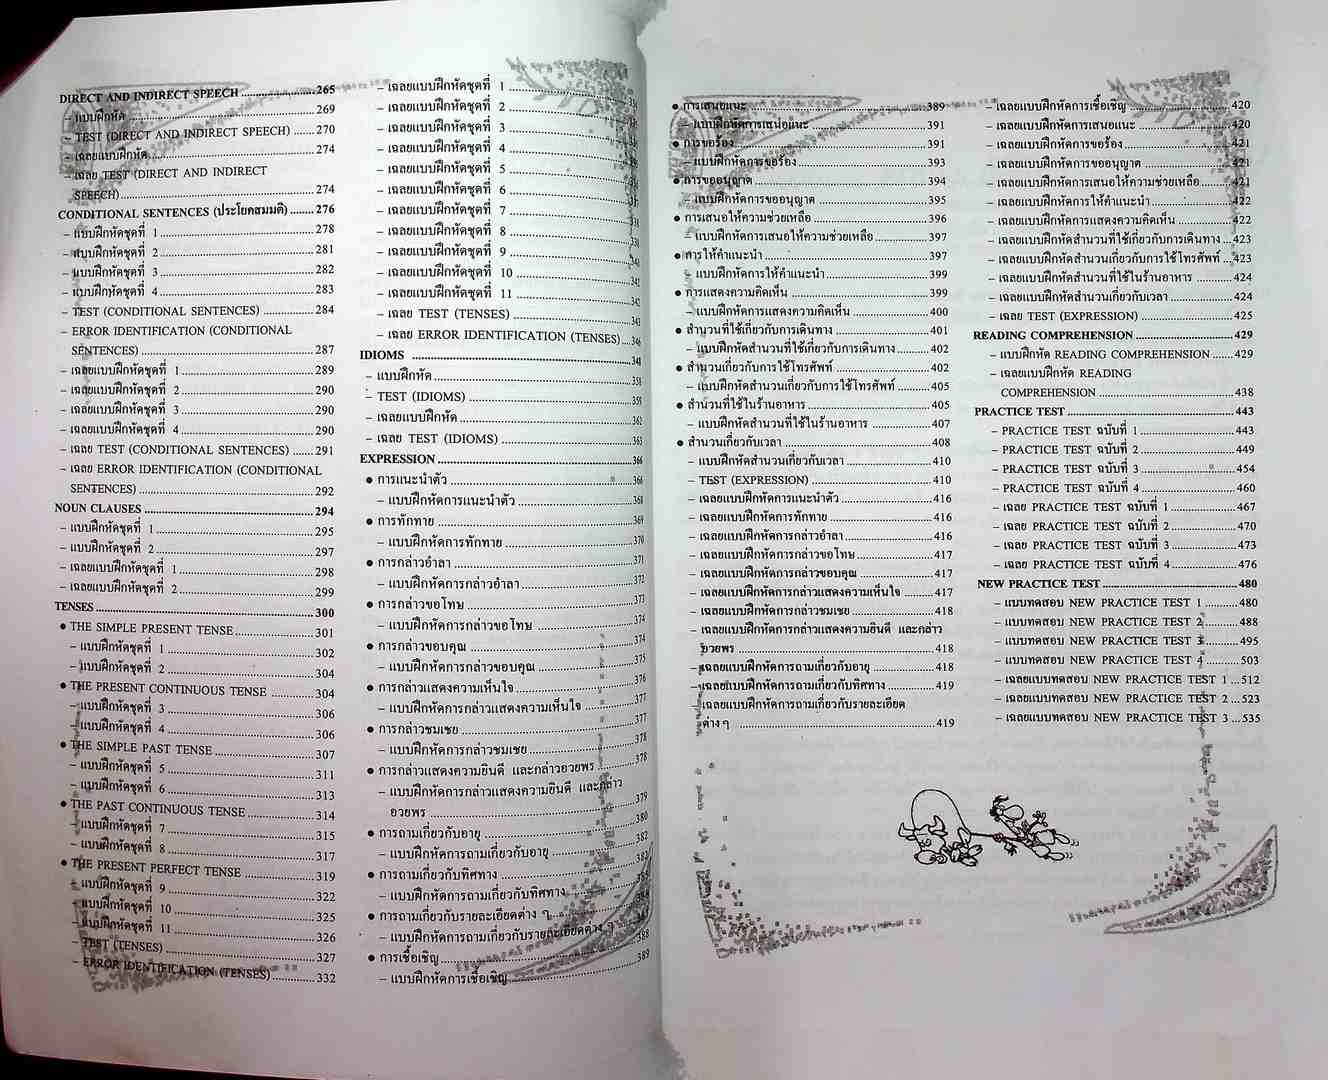 DIRECT AND INDIRECT SPEECH ........ 265
– แบบฝึกหัด ........ 269
– TEST (DIRECT AND INDIRECT SPEECH) ...... 270
– เฉลยแบบฝึกหัด ........ 274
– เฉลย TEST (DIRECT AND INDIRECT
SPEECH) ........ 274
CONDITIONAL SENTENCES (ประโยคสมมติ) ....... 276
– แบบฝึกหัดชุดที่ 1 ........ 278
– แบบฝึกหัดชุดที่ 2 ........ 281
– แบบฝึกหัดชุดที่ 3 ........ 282
– แบบฝึกหัดชุดที่ 4 ........ 283
– TEST (CONDITIONAL SENTENCES) ........ 284
– ERROR IDENTIFICATION (CONDITIONAL
SENTENCES) ........ 287
– เฉลยแบบฝึกหัดชุดที่ 1 ........ 289
– เฉลยแบบฝึกหัดชุดที่ 2 ........ 290
– เฉลยแบบฝึกหัดชุดที่ 3 ........ 290
– เฉลยแบบฝึกหัดชุดที่ 4 ........ 290
– เฉลย TEST (CONDITIONAL SENTENCES) ...... 291
– เฉลย ERROR IDENTIFICATION (CONDITIONAL
SENTENCES) ........ 292
NOUN CLAUSES ........ 294
– แบบฝึกหัดชุดที่ 1 ........ 295
– แบบฝึกหัดชุดที่ 2 ........ 297
– เฉลยแบบฝึกหัดชุดที่ 1 ........ 298
– เฉลยแบบฝึกหัดชุดที่ 2 ........ 299
TENSES ........ 300
● THE SIMPLE PRESENT TENSE ........ 301
– แบบฝึกหัดชุดที่ 1 ........ 302
– แบบฝึกหัดชุดที่ 2 ........ 304
● THE PRESENT CONTINUOUS TENSE ........ 304
– แบบฝึกหัดชุดที่ 3 ........ 306
– แบบฝึกหัดชุดที่ 4 ........ 306
● THE SIMPLE PAST TENSE ........ 307
– แบบฝึกหัดชุดที่ 5 ........ 311
– แบบฝึกหัดชุดที่ 6 ........ 313
● THE PAST CONTINUOUS TENSE ........ 314
– แบบฝึกหัดชุดที่ 7 ........ 315
– แบบฝึกหัดชุดที่ 8 ........ 317
● THE PRESENT PERFECT TENSE ........ 319
– แบบฝึกหัดชุดที่ 9 ........ 322
– แบบฝึกหัดชุดที่ 10 ........ 325
– แบบฝึกหัดชุดที่ 11 ........ 326
– TEST (TENSES) ........ 327
– ERROR IDENTIFICATION (TENSES) ........ 332
– เฉลยแบบฝึกหัดชุดที่ 1 ........
– เฉลยแบบฝึกหัดชุดที่ 2 ........
– เฉลยแบบฝึกหัดชุดที่ 3 ........
– เฉลยแบบฝึกหัดชุดที่ 4 ........
– เฉลยแบบฝึกหัดชุดที่ 5 ........
– เฉลยแบบฝึกหัดชุดที่ 6 ........
– เฉลยแบบฝึกหัดชุดที่ 7 ........
– เฉลยแบบฝึกหัดชุดที่ 8 ........
– เฉลยแบบฝึกหัดชุดที่ 9 ........
– เฉลยแบบฝึกหัดชุดที่ 10 ........
– เฉลยแบบฝึกหัดชุดที่ 11 ........
– เฉลย TEST (TENSES) ........ 343
– เฉลย ERROR IDENTIFICATION (TENSES) .... 346
IDIOMS ........
– แบบฝึกหัด ........
– TEST (IDIOMS) ........
– เฉลยแบบฝึกหัด ........
– เฉลย TEST (IDIOMS) ........
EXPRESSION ........ 366
● การแนะนำตัว ........ 366
– แบบฝึกหัดการแนะนำตัว ........ 368
● การทักทาย ........ 369
– แบบฝึกหัดการทักทาย ........ 370
● การกล่าวอำลา ........ 371
– แบบฝึกหัดการกล่าวอำลา ........ 372
● การกล่าวขอโทษ ........ 373
– แบบฝึกหัดการกล่าวขอโทษ ........ 374
● การกล่าวขอบคุณ ........ 374
– แบบฝึกหัดการกล่าวขอบคุณ ........ 375
● การกล่าวแสดงความเห็นใจ ........ 376
– แบบฝึกหัดการกล่าวแสดงความเห็นใจ ........ 377
● การกล่าวชมเชย ........ 377
– แบบฝึกหัดการกล่าวชมเชย ........ 378
● การกล่าวแสดงความยินดี และกล่าวอวยพร ........ 378
– แบบฝึกหัดการกล่าวแสดงความยินดี และกล่าว
อวยพร ........ 379
● การถามเกี่ยวกับอายุ ........ 380
– แบบฝึกหัดการถามเกี่ยวกับอายุ ........ 382
● การถามเกี่ยวกับทิศทาง ........
– แบบฝึกหัดการถามเกี่ยวกับทิศทาง ........
● การถามเกี่ยวกับรายละเอียดต่าง ๆ ........
– แบบฝึกหัดการถามเกี่ยวกับรายละเอียดต่าง ๆ ........
● การเชื้อเชิญ ........ 388
– แบบฝึกหัดการเชื้อเชิญ ........ 389
● การเสนอแนะ ........ 389
– แบบฝึกหัดการเสนอแนะ ........ 391
● การขอร้อง ........ 391
– แบบฝึกหัดการขอร้อง ........ 393
● การขออนุญาต ........ 394
– แบบฝึกหัดการขออนุญาต ........ 395
● การเสนอให้ความช่วยเหลือ ........ 396
– แบบฝึกหัดการเสนอให้ความช่วยเหลือ ........ 397
● การให้คำแนะนำ ........ 397
– แบบฝึกหัดการให้คำแนะนำ ........ 399
● การแสดงความคิดเห็น ........ 399
– แบบฝึกหัดการแสดงความคิดเห็น ........ 400
● สำนวนที่ใช้เกี่ยวกับการเดินทาง ........ 401
– แบบฝึกหัดสำนวนที่ใช้เกี่ยวกับการเดินทาง ........ 402
● สำนวนเกี่ยวกับการใช้โทรศัพท์ ........ 402
– แบบฝึกหัดสำนวนเกี่ยวกับการใช้โทรศัพท์ ........ 405
● สำนวนที่ใช้ในร้านอาหาร ........ 405
– แบบฝึกหัดสำนวนที่ใช้ในร้านอาหาร ........ 407
● สำนวนเกี่ยวกับเวลา ........ 408
– แบบฝึกหัดสำนวนเกี่ยวกับเวลา ........ 410
– TEST (EXPRESSION) ........ 410
– เฉลยแบบฝึกหัดการแนะนำตัว ........ 416
– เฉลยแบบฝึกหัดการทักทาย ........ 416
– เฉลยแบบฝึกหัดการกล่าวอำลา ........ 416
– เฉลยแบบฝึกหัดการกล่าวขอโทษ ........ 417
– เฉลยแบบฝึกหัดการกล่าวขอบคุณ ........ 417
– เฉลยแบบฝึกหัดการกล่าวแสดงความเห็นใจ ........ 417
– เฉลยแบบฝึกหัดการกล่าวชมเชย ........ 418
– เฉลยแบบฝึกหัดการกล่าวแสดงความยินดี และกล่าว
อวยพร ........ 418
– เฉลยแบบฝึกหัดการถามเกี่ยวกับอายุ ........ 418
– เฉลยแบบฝึกหัดการถามเกี่ยวกับทิศทาง ........ 419
– เฉลยแบบฝึกหัดการถามเกี่ยวกับรายละเอียด
ต่างๆ ........ 419
– เฉลยแบบฝึกหัดการเชื้อเชิญ ........ 420
– เฉลยแบบฝึกหัดการเสนอแนะ ........ 420
– เฉลยแบบฝึกหัดการขอร้อง ........ 421
– เฉลยแบบฝึกหัดการขออนุญาต ........ 421
– เฉลยแบบฝึกหัดการเสนอให้ความช่วยเหลือ ........ 421
– เฉลยแบบฝึกหัดการให้คำแนะนำ ........ 422
– เฉลยแบบฝึกหัดการแสดงความคิดเห็น ........ 422
– เฉลยแบบฝึกหัดสำนวนที่ใช้เกี่ยวกับการเดินทาง ... 423
– เฉลยแบบฝึกหัดสำนวนเกี่ยวกับการใช้โทรศัพท์ ... 423
– เฉลยแบบฝึกหัดสำนวนที่ใช้ในร้านอาหาร ........ 424
– เฉลยแบบฝึกหัดสำนวนเกี่ยวกับเวลา ........ 424
– เฉลย TEST (EXPRESSION) ........ 425
READING COMPREHENSION ........ 429
– แบบฝึกหัด READING COMPREHENSION ...... 429
– เฉลยแบบฝึกหัด READING
COMPREHENSION ........ 438
PRACTICE TEST ........ 443
– PRACTICE TEST ฉบับที่ 1 ........ 443
– PRACTICE TEST ฉบับที่ 2 ........ 449
– PRACTICE TEST ฉบับที่ 3 ........ 454
– PRACTICE TEST ฉบับที่ 4 ........ 460
– เฉลย PRACTICE TEST ฉบับที่ 1 ........ 467
– เฉลย PRACTICE TEST ฉบับที่ 2 ........ 470
– เฉลย PRACTICE TEST ฉบับที่ 3 ........ 473
– เฉลย PRACTICE TEST ฉบับที่ 4 ........ 476
NEW PRACTICE TEST ........ 480
– แบบทดสอบ NEW PRACTICE TEST 1 ........ 480
– แบบทดสอบ NEW PRACTICE TEST 2 ........ 488
– แบบทดสอบ NEW PRACTICE TEST 3 ........ 495
– แบบทดสอบ NEW PRACTICE TEST 4 ........ 503
– เฉลยแบบทดสอบ NEW PRACTICE TEST 1 ... 512
– เฉลยแบบทดสอบ NEW PRACTICE TEST 2 ... 523
– เฉลยแบบทดสอบ NEW PRACTICE TEST 3 ... 535